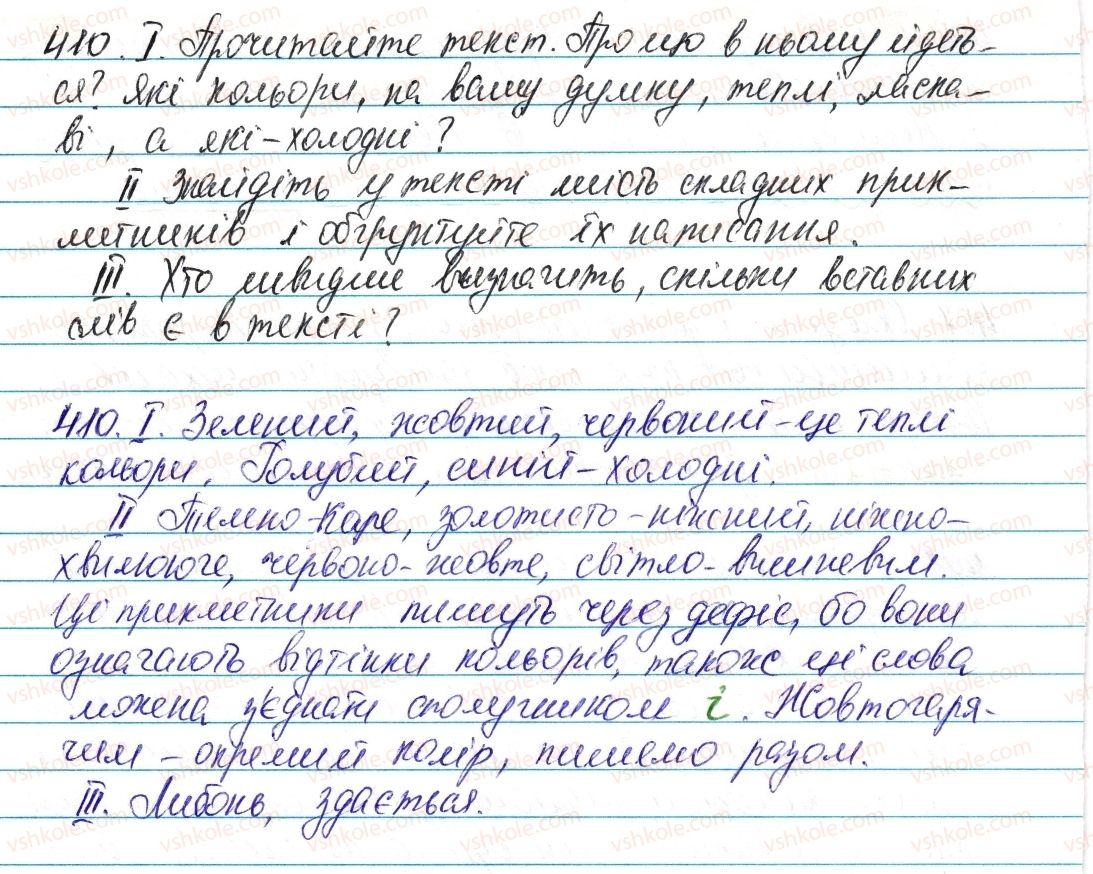 410. I. Прочитайте текст. Про що в ньому йдеть-
ся? Які кольори, на вашу думку, теплі, ласка-
ві, а які - холодні?
II Знайдіть у тексті шість складних прик-
метників і обґрунтуйте їх написання.
III. Хто швидше визначить, скільки вставних
слів є в тексті?
410. I. Зелений, жовтий, червоний - це теплі
кольори. Голубий, синій - холодні.
II Темно-каре, золотисто-ніжний, ніжно-
хвилююче, червоно-жовте, світло-вишневим.
Ці прикметники пишуть через дефіс, бо вони
означають відтінки кольорів, також ці слова
можена з'єднати сполучником і. Жовтогаря-
чим - окремий колір, пишемо разом.
III. Либонь, здається.